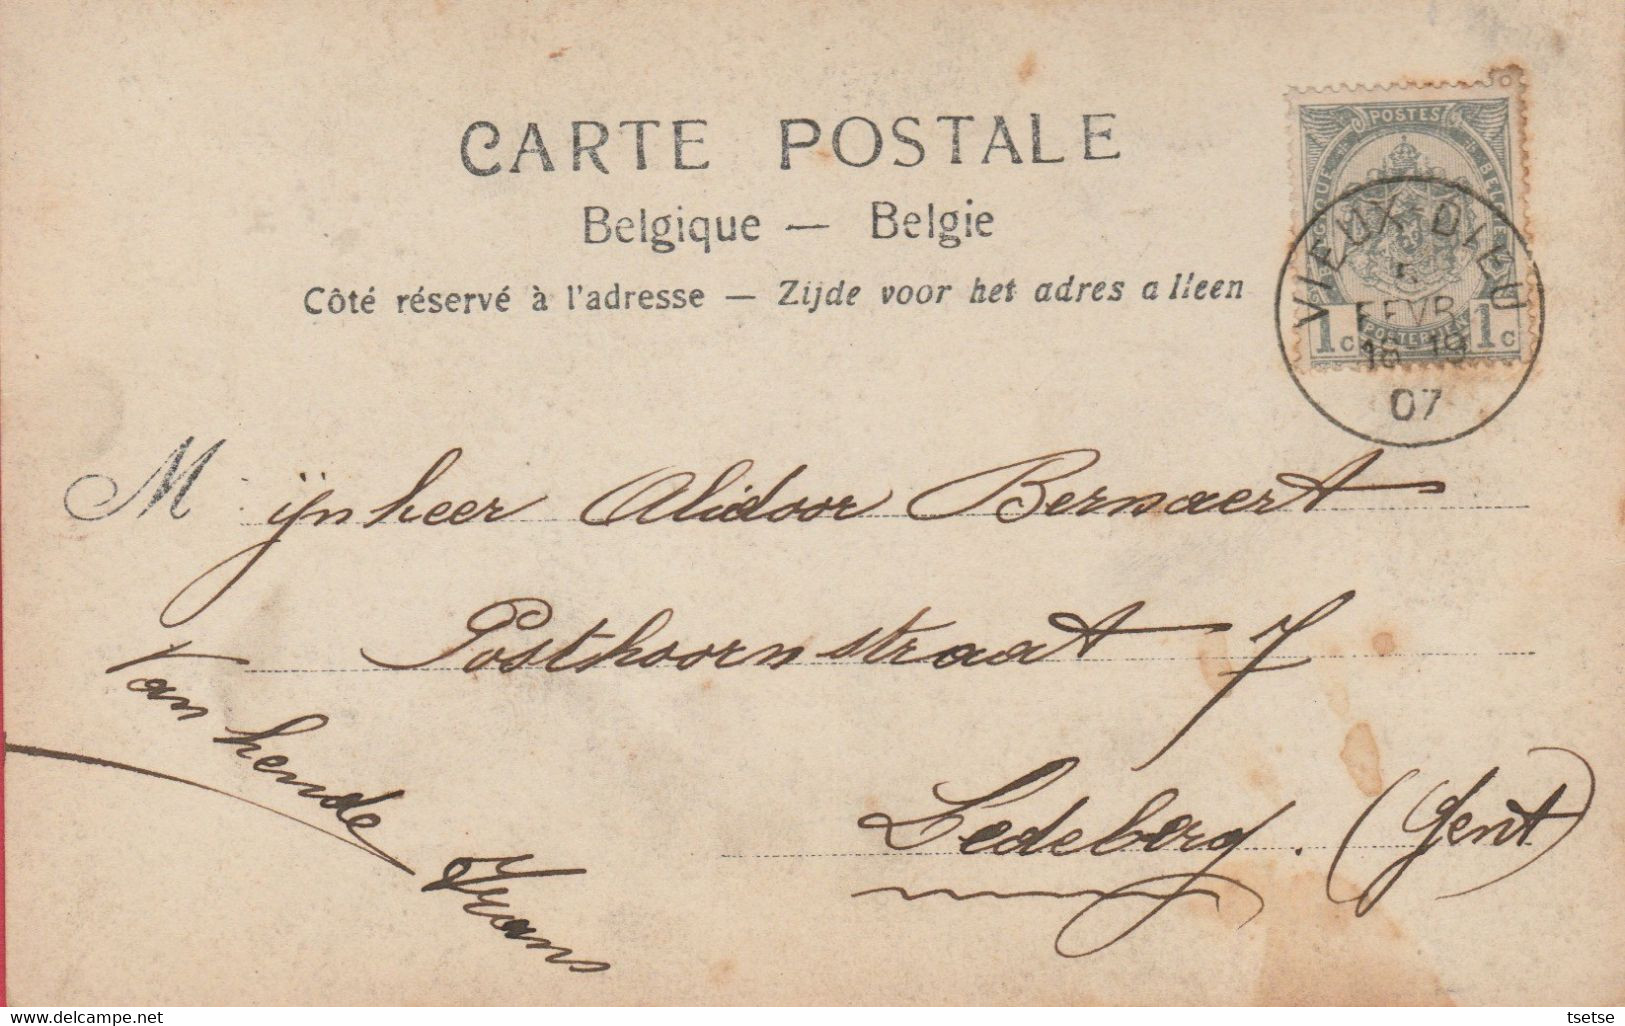 CARTE POSTALE
Belgique — Belgie
Côté réservé à l'adresse — Zijde voor het adres alleen
POSTES
BELGIQUE
POSTERIJEN
1c 1c
VIEUX-DIEU
5
FEVR
18-19
07
Mijnheer Alidoor Bernaert
Posthoornstraat 7
Ledeberg. (Gent)
Van hende
Frans
delcampe.net
tsetse